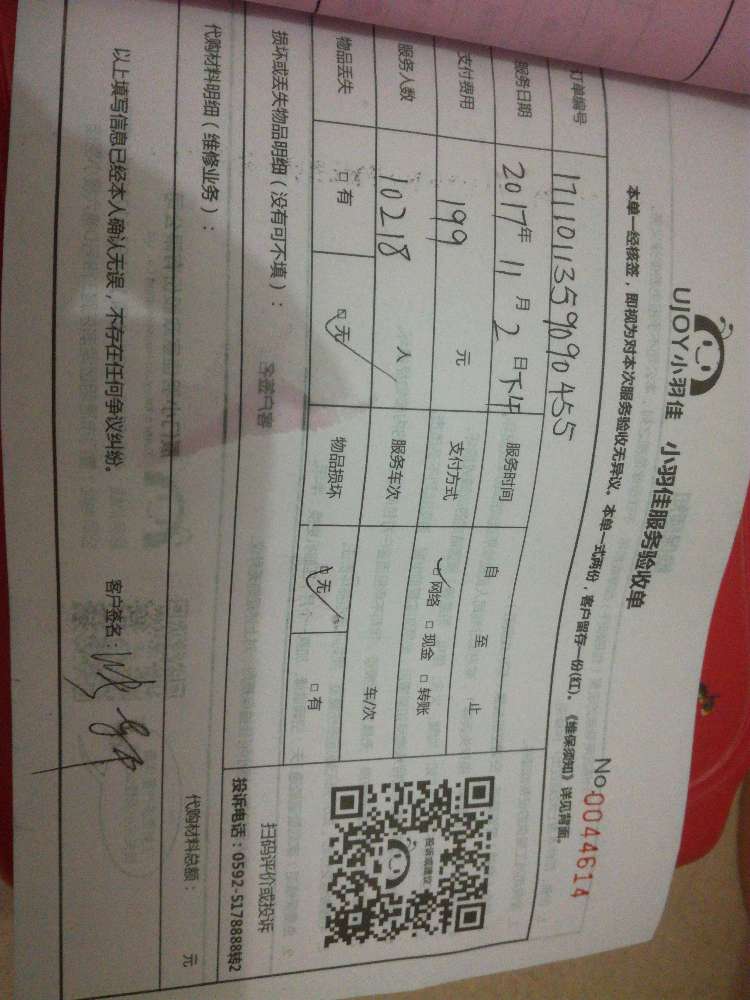 UJOY小羽佳 小羽佳服务验收单
No 0044614
本单一经核签，即视为对本次服务验收无异议。本单一式两份，客户留存一份(红)。《维保须知》详见背面。
订单编号 1711011359090455
服务日期 2017年 11 月 2 日下午 服务时间 自 至 止
支付费用 199 元 支付方式 网络 □ 现金 □ 转账
服务人数 10218 人 服务车次 车/次
物品丢失 □ 有 □ 无 物品损坏 □ 无 □ 有
投诉或建议
损坏或丢失物品明细（没有可不填）：
扫码评价或投诉
投诉电话：0592-5178888转2
代购材料明细（维修业务）：
代购材料总额： 元
以上填写信息已经本人确认无误，不存在任何争议纠纷。 客户签名：